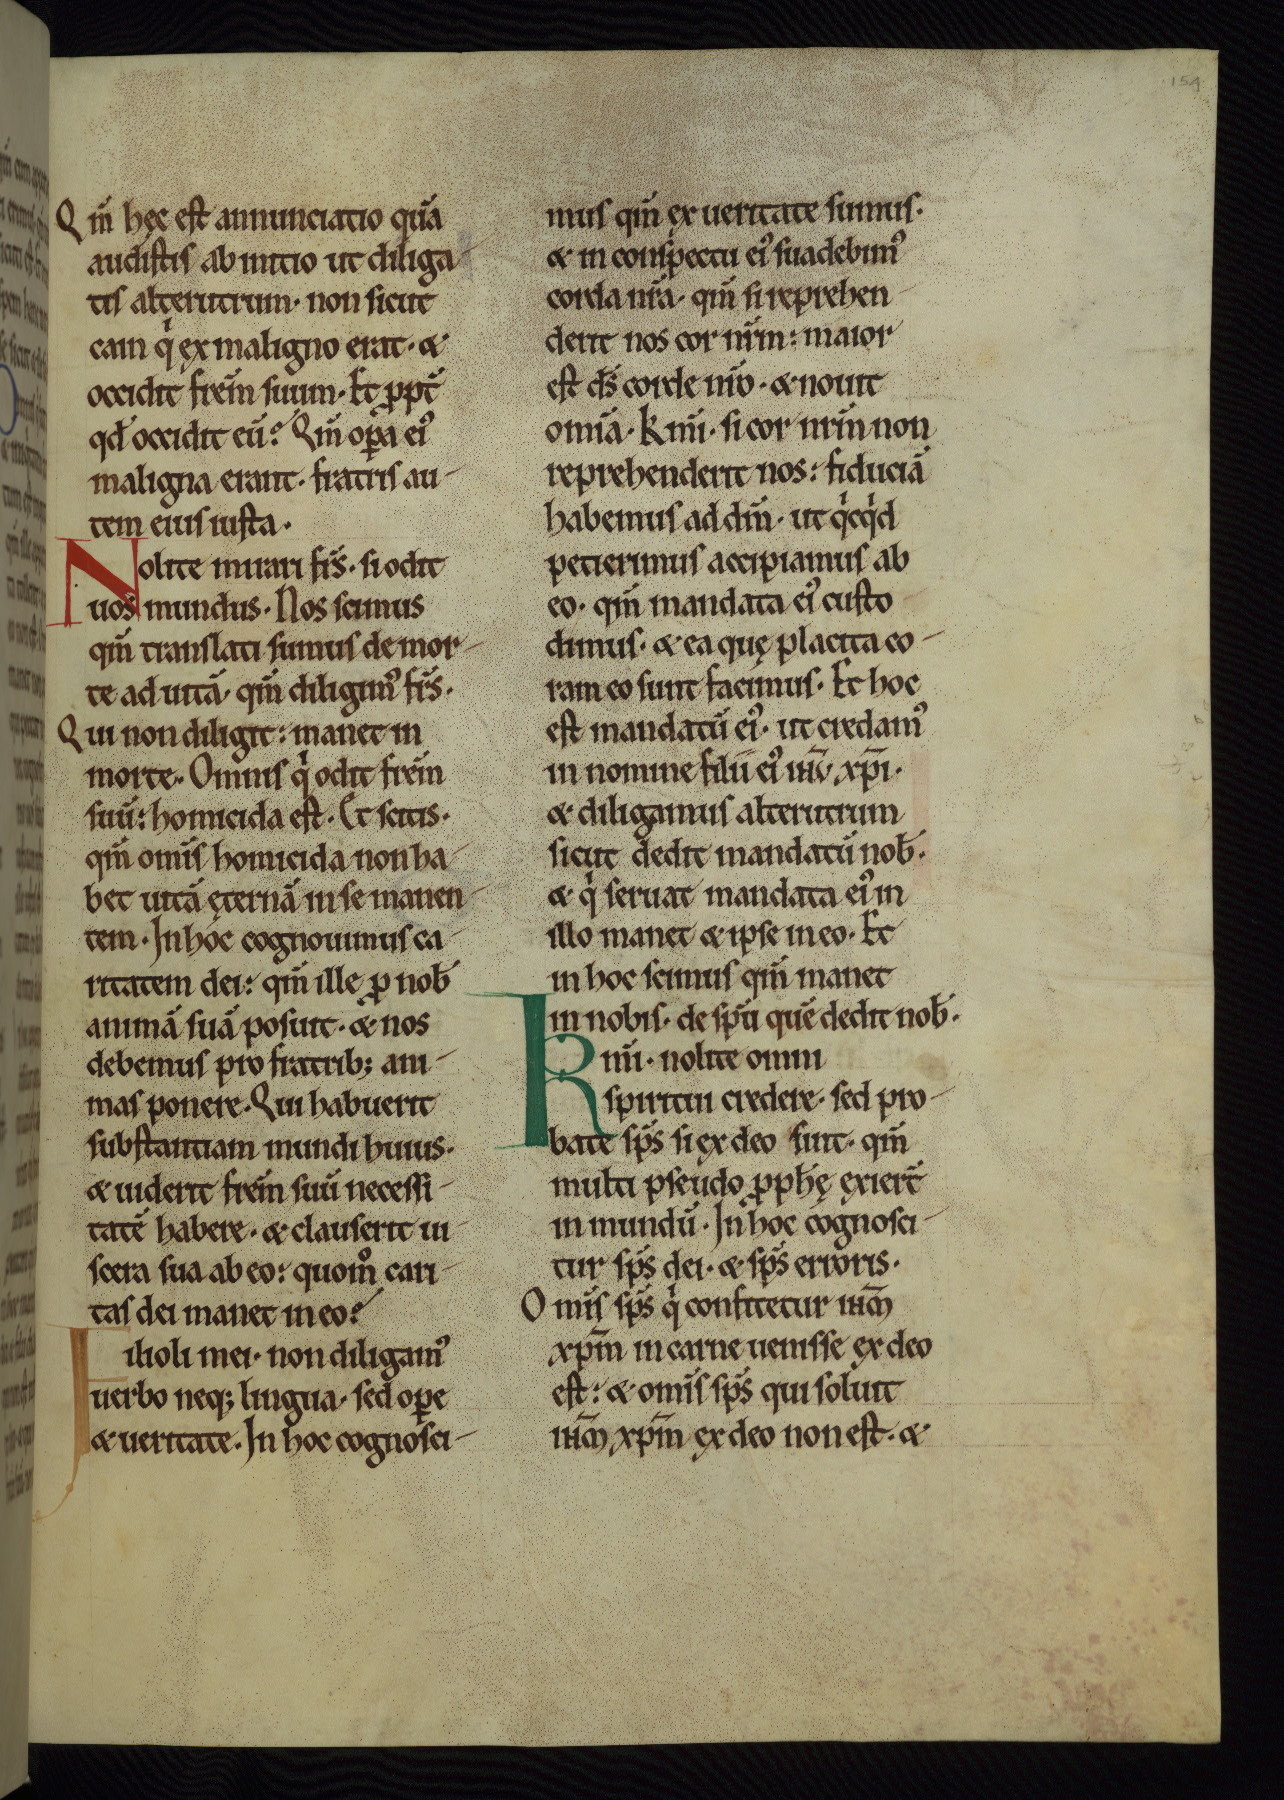 154
Qm̄ hęc est annunciatio quā
audistis ab initio ut diliga
tis alterutrum· non sicut
cain q̇ ex maligno erat· &
occidit frēm suum· Et ꝓpt̄
qd̄ occidit eū? Qm̄ opa ei᾿
maligna erant· fratris au-
tem eius iusta·
Nolite mirari frs̄· si odit
uos mundus· Nos scimus
qm̄ translati sumus de mor-
te ad uitā· qm̄ diligim᾿ frs̄·
Qui non diligit: manet in
morte· Omnis q̇ odit frēm
suū: homicida est· Et scitis·
qm̄ omis̄ homicida non ha-
bet uitā ęternā in se manen-
tem· In hoc cognouimus ca-
ritatem dei: qm̄ ille ꝓ nob̄
animā suā posuit· & nos
debemus pro fratrib; ani-
mas ponere· Qui habuerit
substantiam mundi huius·
& uiderit frēm suū necessi-
tatē habere· & clauserit ui-
scera sua ab eo: quom̊ cari-
tas dei manet in eo?
Filioli mei· non diligam᾿
uerbo neq; lingua· sed ope
& ueritate· In hoc cognosci-
mus qm̄ ex ueritate sumus·
& in conspectu ei᾿ suadebim᾿
corda nr̄a· qm̄ si reprehen-
derit nos cor nr̄m: maior
est ds̄ corde nr̄o· & nouit
omīa· Kmī· si cor nr̄m non
reprehenderit nos: fiduciā
habemus ad dm̄· ut q̇cq̇d
petierimus accipiamus ab
eo· qm̄ mandata ei᾿ custo
dimus· & ea quę placita co-
ram eo sunt facimus· Et hoc
est mandatū ei᾿· ut credam᾿
in nomine filii ei᾿ ihū xp̄i·
& diligamus alterutrum
sicut dedit mandatū nob̄·
& q̇ seruat mandata ei᾿ in
illo manet & ipse in eo· Et
in hoc scimus qm̄ manet
in nobis· de spū quē dedit nob̄·
Kmī· nolite omni
spiritui credere· sed pro-
bate sps̄ si ex deo sint· qm̄
multi pseudo ꝓphę̄ exiert̄
in mundū· In hoc cognosci-
tur sps̄ dei· & sps̄ erroris·
Omis̄ sps̄ q̇ confitetur ihm̄
xpm̄ in carne uenisse ex deo
est: & omis̄ sps̄ qui soluit
ihm̄ xpm̄ ex deo non est· &